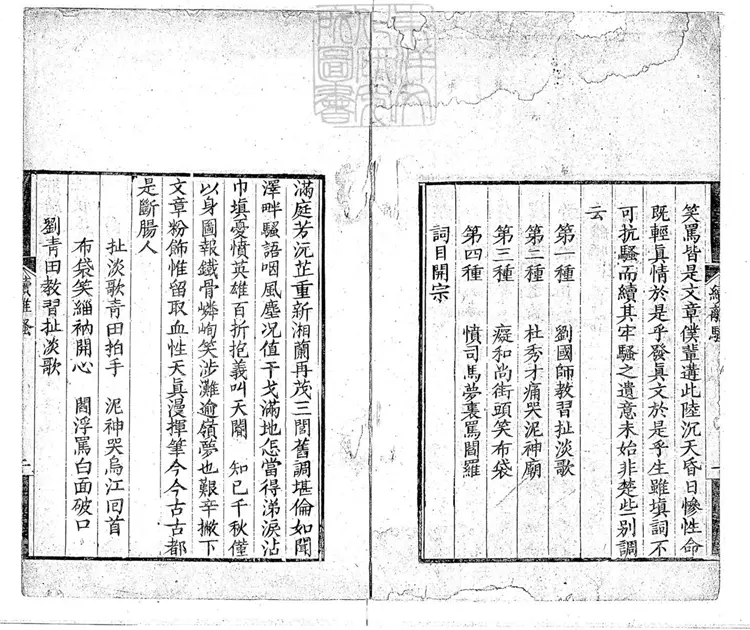 笑罵皆是文章僕輩遘此陸沉天昏日慘性命
既輕真情於是乎發真文於是乎生雖填詞不
可抗騷而續其牢騷之遺意未始非楚些别調
云
第一種　劉國師教習扯淡歌
第二種　杜秀才痛哭泥神廟
第三種　癡和尚街頭笑布袋
第四種　憤司馬夢裏罵閻羅
詞目開宗
續離騷
一
滿庭芳沅芷重新湘蘭再茂三閭舊調堪倫如聞
澤畔騷語咽風塵况值干戈滿地怎當得涕淚沾
巾填憂憤英雄百折抱義叫天閽　知已千秋僅
以身圖報鐵骨嶙峋笑涉灘逾嶺夢也艱辛撇下
文章粉飾惟留取血性天真漫揮筆今今古古都
是斷腸人
扯淡歌青田拍手　泥神哭烏江回首
布袋笑緇衲開心　閻浮罵白面破口
劉青田教習扯淡歌
續離騷